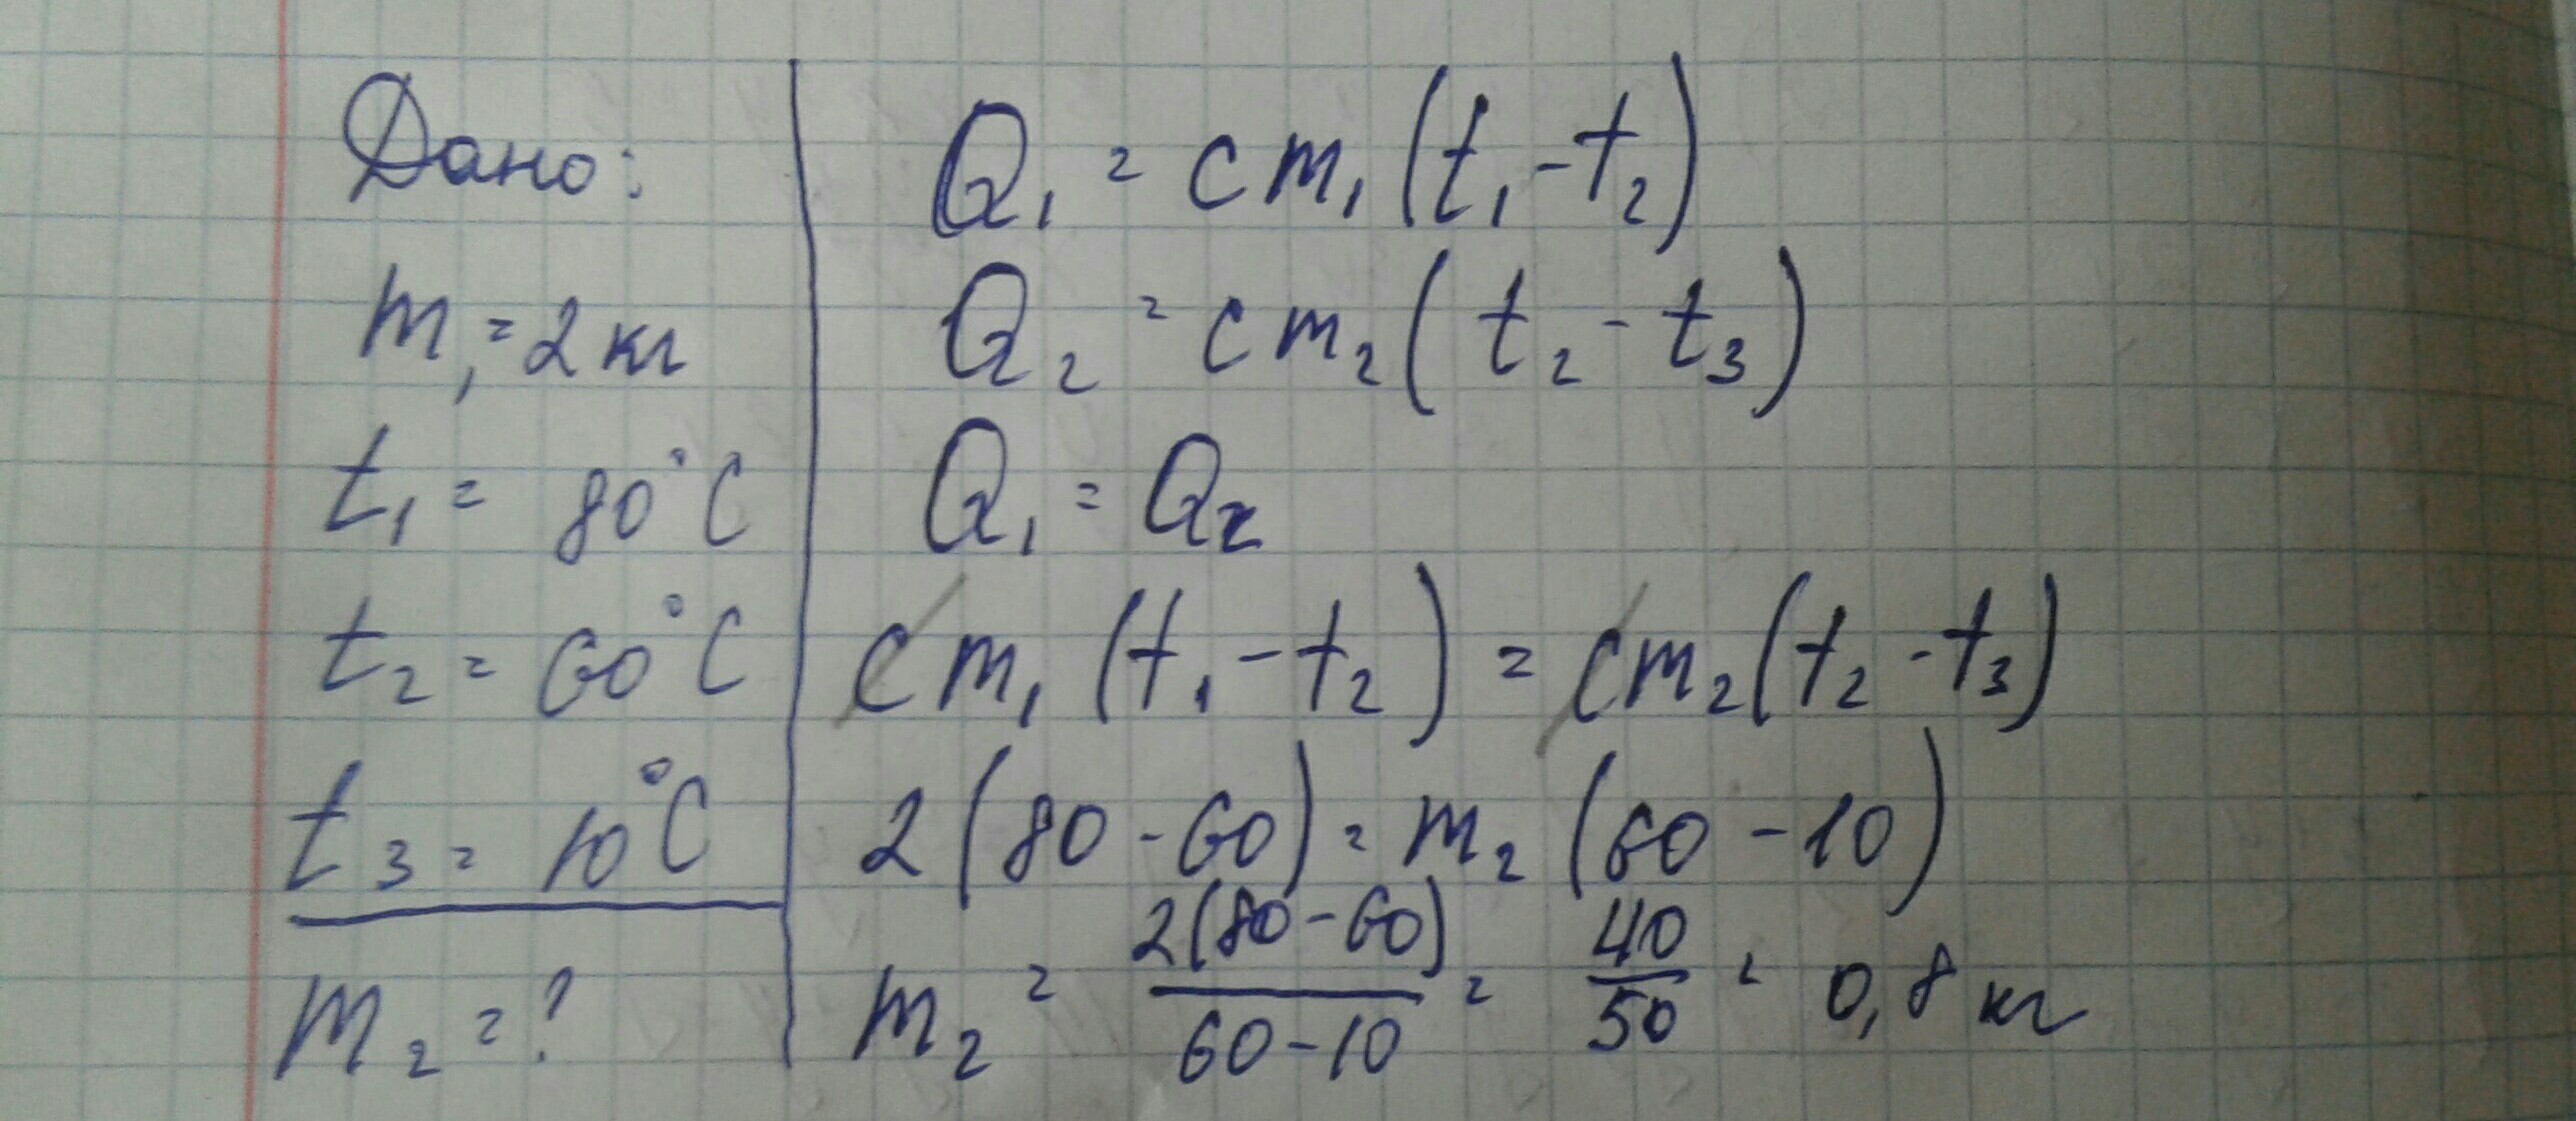 Дано:
m₁ = 2 кг
t₁ = 80°C
t₂ = 60°C
t₃ = 10°C
m₂ = ?
Q₁ = cm₁(t₁ - t₂)
Q₂ = cm₂(t₂ - t₃)
Q₁ = Q₂
cm₁(t₁ - t₂) = cm₂(t₂ - t₃)
2(80 - 60) = m₂(60 - 10)
m₂ = 2(80 - 60) / 60 - 10 = 40 / 50 = 0,8 кг